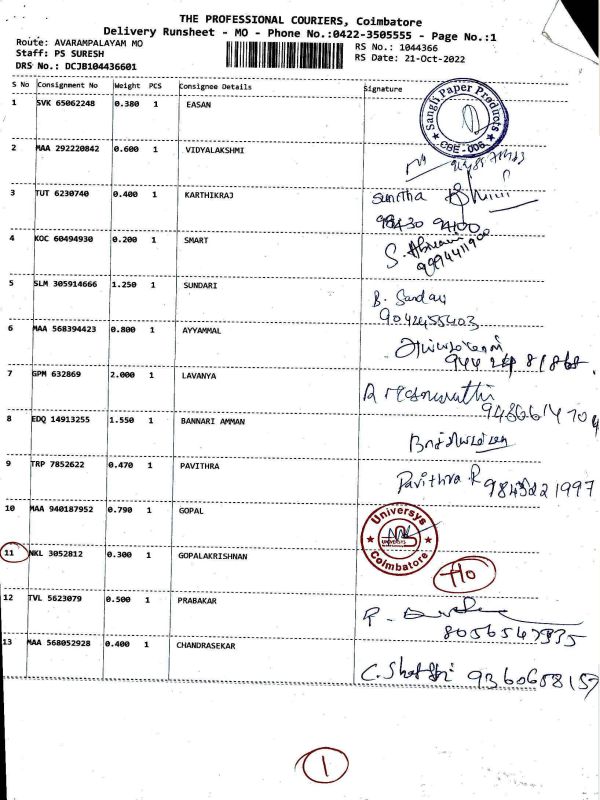 THE PROFESSIONAL COURIERS, Coimbatore
Delivery Runsheet - MO - Phone No.:0422-3505555 - Page No.:1
Route: AVARAMPALAYAM MO
RS No.: 1044366
Staff: PS SURESH
RS Date: 21-Oct-2022
DRS No.: DCJB104436601
S No Consignment No Weight PCS Consignee Details Signature
1 SVK 65062248 0.380 1 EASAN
Sangli Paper Products
CBE - 006
2 MAA 292220842 0.600 1 VIDYALAKSHMI
3 TUT 6230740 0.400 1 KARTHIKRAJ
98430 94100
4 KOC 60494930 0.200 1 SMART
9994411900
5 SLM 305914666 1.250 1 SUNDARI
B. Sundari
9042455403
6 MAA 568394423 0.800 1 AYYAMMAL
7 GPM 632869 2.000 1 LAVANYA
8 EDQ 14913255 1.550 1 BANNARI AMMAN
9 TRP 7852622 0.470 1 PAVITHRA
Pavithra R 9843221997
10 MAA 940187952 0.790 1 GOPAL
Universys
UNIVERSYS
Coimbatore
11 NKL 3052812 0.300 1 GOPALAKRISHNAN
12 TVL 5623079 0.500 1 PRABAKAR
8056547335
13 MAA 568052928 0.400 1 CHANDRASEKAR
9360658157
1